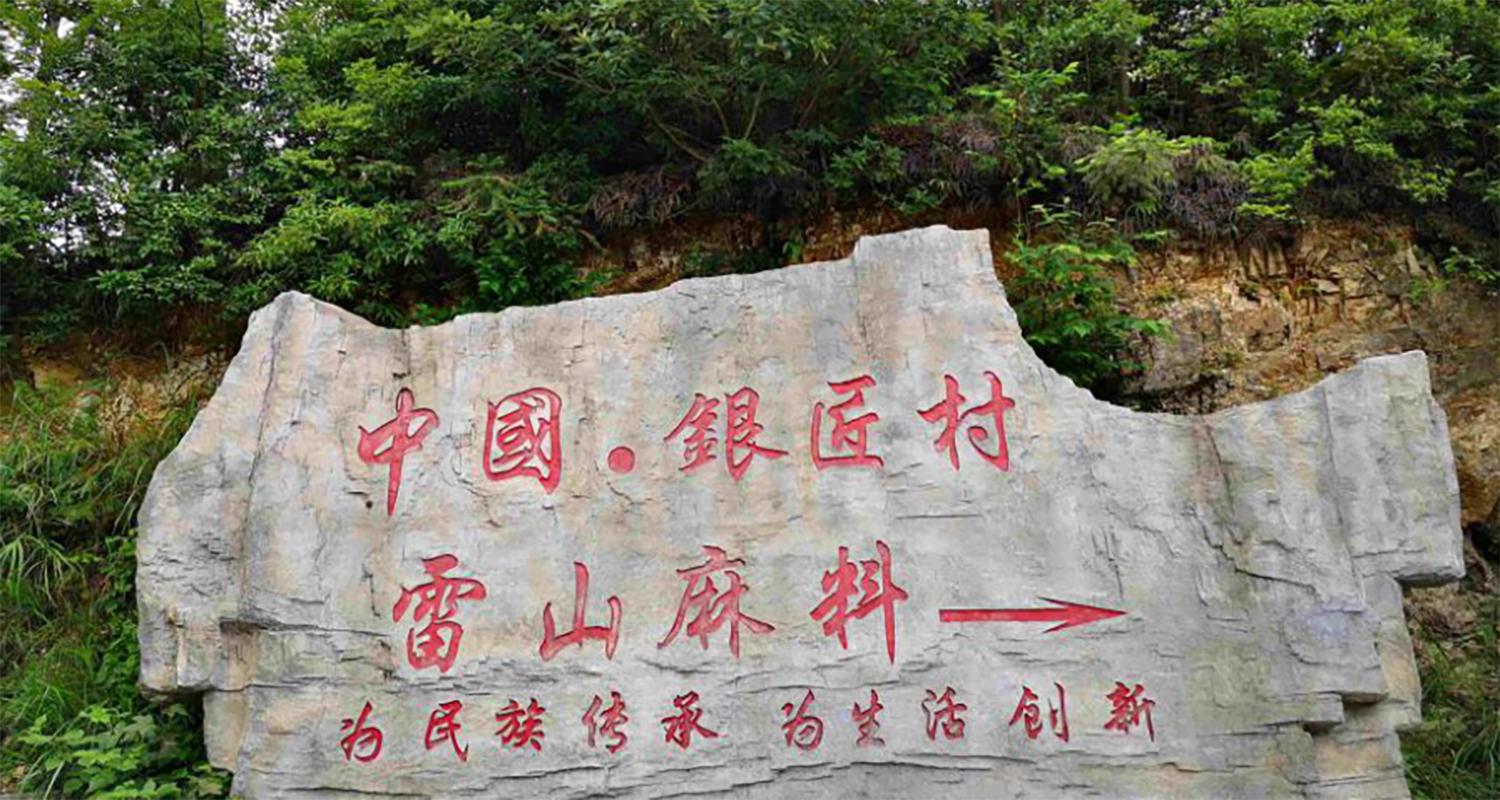 中國·銀匠村
雷山麻料→
为民族传承 为生活创新